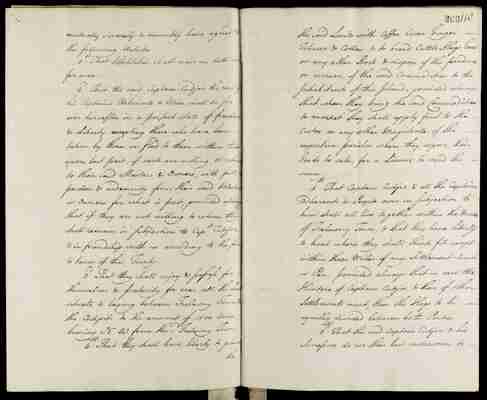 mutually, sincerely & amicably have agreed to
the following Articles
1st That Hostilities shall cease on both sides
for ever.
2d That the said Captain Cudjoe the rest of
his Captains Adherents & Men shall be for
ever hereafter in a perfect state of freedom
& Liberty excepting those who have been
taken by them or fled to them within two
years last past if such are willing to return
to their said Masters & Owners, with full
pardon & indemnity from their said Masters
or Owners for what is past, provided always
that if they are not willing to return they
shall remain in subjection to Capt Cudjoe
& in friendship with us according to the form
& tenor of this Treaty.
3d That they shall enjoy & possess for
themselves & posterity for ever all the Lands
situate & laying between Trelawny Town &
the Cockpits to the amount of 1500 Acres
bearing N. W. from the Trelawny Town
4th That they shall have liberty to plant
the
the said Lands with Coffee Cocoa Ginger
Tobacco & Cotton & to breed Cattle Hogs Goats
or any other Stock & dispose of the produce
or increase of the said Commodities to the
Inhabitants of this Island, provided always
that when they bring the said Commodities
to market they shall apply first to the
Custos or any other Magistrate of the
respective parishes where they expose their
Goods to sale for a Licence to vend the
same
5th That Captain Cudjoe & all the Captains
Adherents & People now in subjection to
him shall all live together within the bounds
of Trelawny Town, & that they have liberty
to hunt where they shall think fit except
within three Miles of any Settlement Crawl
or Pen, provided always that in case the
Hunters of Captain Cudjoe & those of other
Settlements meet then the Hogs to be
equally divided between both Parties.
6th That the said Captain Cudjoe & his
Successors do use their best endeavours to